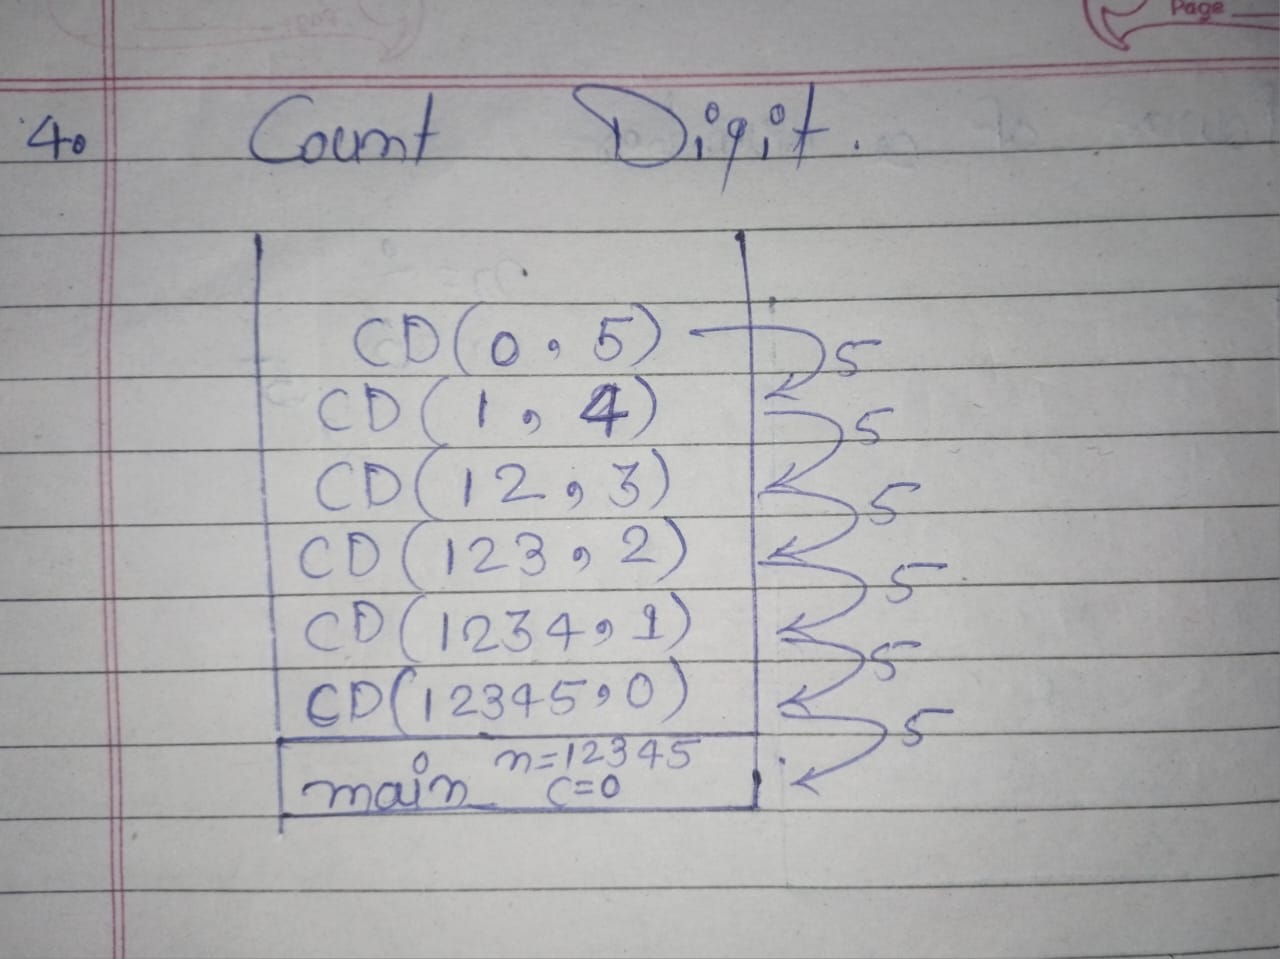 Page
4. Count Digit.
CD(0, 5) 5
CD(1, 4) 5
CD(12, 3) 5
CD(123, 2) 5
CD(1234, 1) 5
CD(12345, 0) 5
main n=12345
c=0